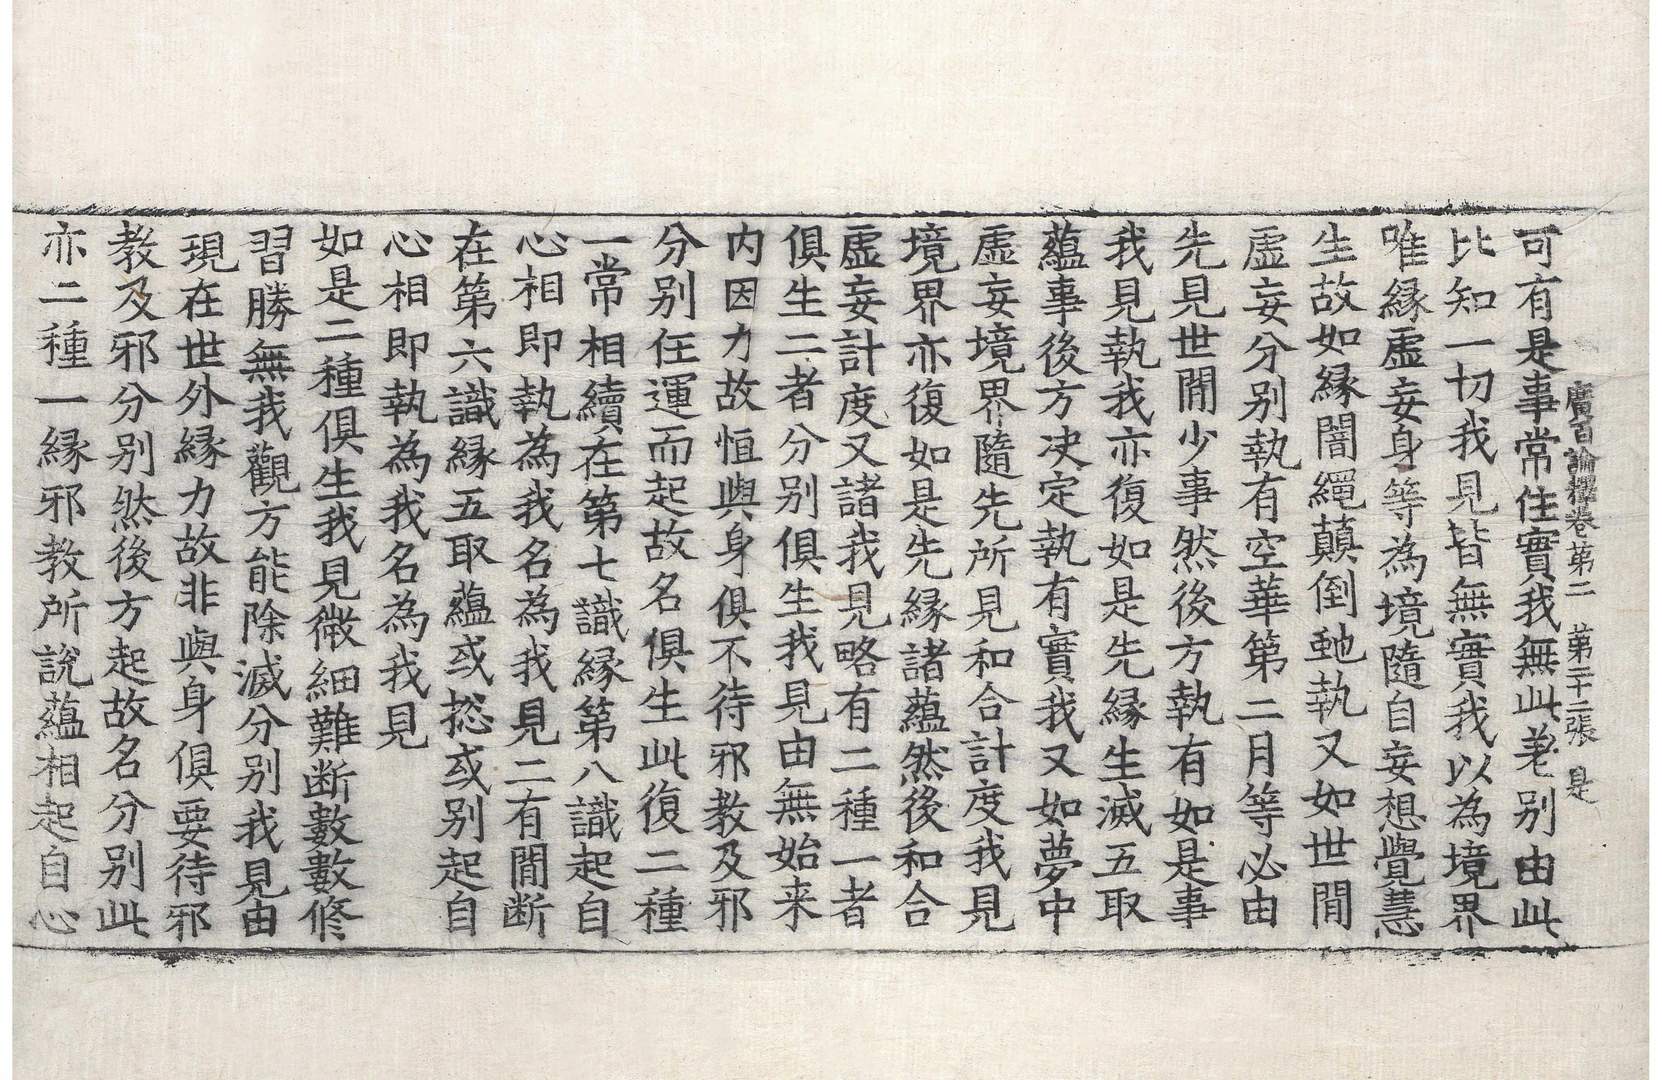 廣百論釋卷第二　第二十二張　是
可有是事常住實我無此差別由此
比知一切我見皆無實我以為境界
唯縁虛妄身等為境隨自妄想覺慧
生故如縁闇繩顛倒虵執又如世閒
虛妄分别執有空華第二月等必由
先見世閒少事然後方執有如是事
我見執我亦復如是先縁生滅五取
蘊事後方决定執有實我又如夢中
虛妄境界隨先所見和合計度我見
境界亦復如是先縁諸蘊然後和合
虛妄計度又諸我見略有二種一者
俱生二者分别俱生我見由無始来
内因力故恒與身俱不待邪教及邪
分别任運而起故名俱生此復二種
一常相續在第七識縁第八識起自
心相即執為我名為我見二有閒断
在第六識縁五取蘊或揔或别起自
心相即執為我名為我見
如是二種俱生我見微細難断數數修
習勝無我觀方能除滅分别我見由
現在世外縁力故非與身俱要待邪
教及邪分别然後方起故名分别此
亦二種一縁邪教所說蘊相起自心